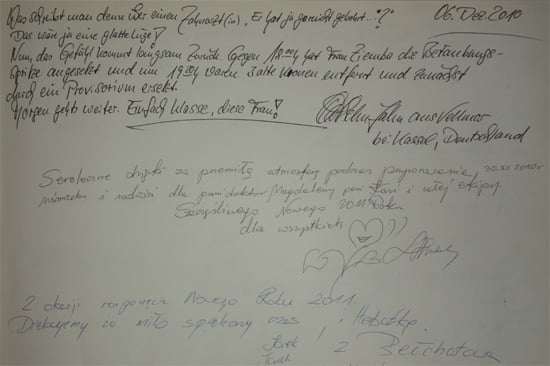 Was schreibt man denn über einen Zahnarzt(in). „Er hat ja garnicht gebohrt...“? 06. Dez. 2010
Das wäre ja eine glatte Lüge!
Nun, das Gefühl kommt langsam zurück. Gegen 18.00h hat Frau Ziemba die Betäubungs-
spritze angesetzt und um 19.00h waren 3 alte Kronen entfernt und zunächst
durch ein Provisorium ersetzt.
Morgen geht's weiter. Einfach Klasse, diese Frau!
aus Vellmar
bei Kassel, Deutschland
Serdeczne dzięki za przemiłą atmosferę podczas 30.XII.2010r
uśmiechu i radości dla pani doktor Magdaleny, pani Kasi i całej ekipy
Szczęśliwego Nowego 2011 Roku
dla wszystkich
Z okazji rozpoczęcia Nowego Roku 2011
Dziękujemy za miło spędzony czas i Herbatkę.
Jurek
z Bełchatowa